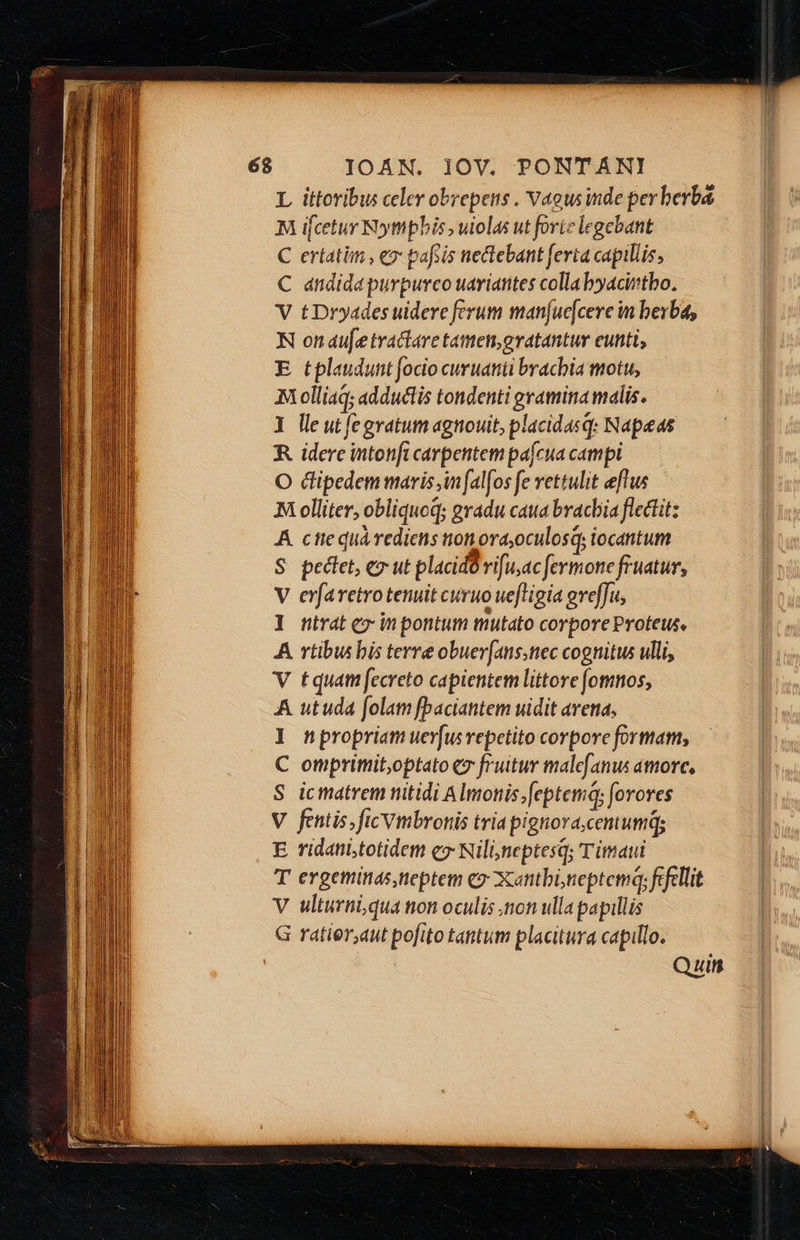 68 IOAN. IOV. PONTANI
L ittoribus celer obrepens. Vagus inde per herbã
M iſcetur Nymphis, uiolas ut forte legebant
C ertatim, & paſsis nectebant ſerta capillis,
C andida purpureo uariantes colla hyacintho.
V t Dryades uidere ferum manſueſcere in herba,
N on auſæ tractare tamen, gratantur eunti,
E t plaudunt ſocio curuanti brachia motu,
M olliaq; adductis tondenti gramina malis.
I lle ut ſe gratum agnouit, placidasq; Napæas
R idere intonſi carpentem paſcua campi
O ctipedem maris, in ſalſos ſe rettulit æſtus
M olliter, obliquoq; gradu caua brachia flectit:
A c ne quà rediens non ora, oculosq; iocantum
S pectet, & ut placido riſu, ac ſermone fruatur,
V erſa retro tenuit curuo ueſtigia greſſu,
I ntrat & in pontum mutato corpore Proteus.
A rtibus his terræ obuerſans, nec cognitus ulli,
V t quam ſecreto capientem littore ſomnos,
A ut uda ſolam ſpaciantem uidit arena,
I n propriam uerſus repetito corpore formam,
C omprimit, optato & fruitur maleſanus amore.
S ic matrem nitidi Almonis, ſeptemq; ſorores
V fentis, ſic Vmbronis tria pignora, centumq;
E ridani, totidem & Nili, neptesq; Timaui
T ergeminas, neptem & Xanthi, neptemq; fefellit
V ulturni, qua non oculis, non ulla papillis
G ratior, aut poſito tantum placitura capillo.
Quin